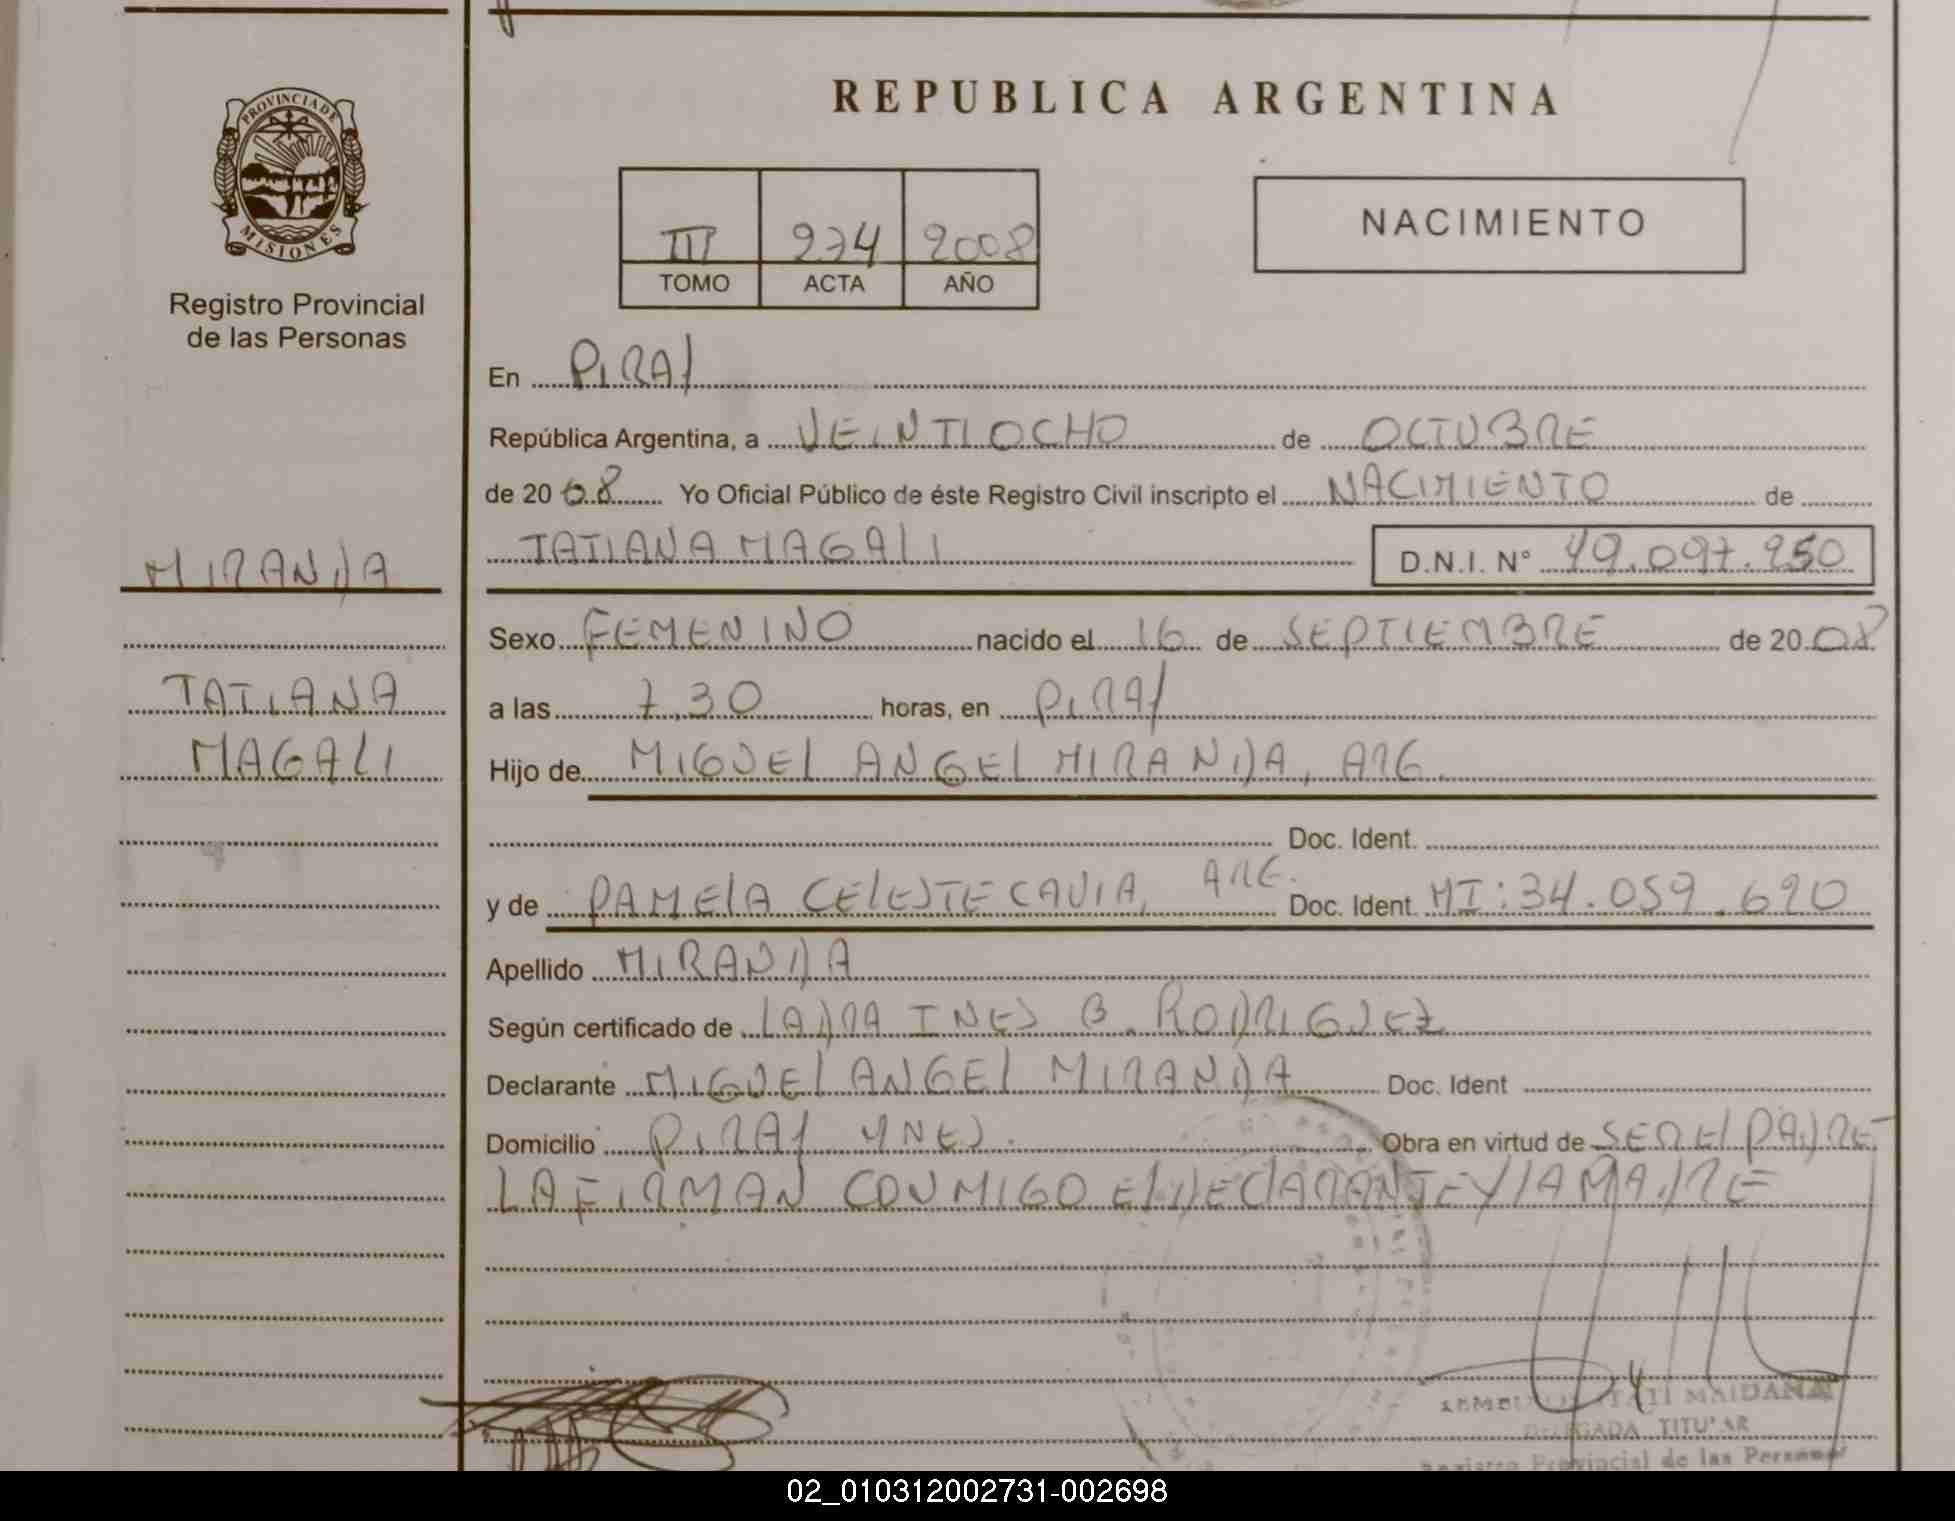 REPUBLICA ARGENTINA
PROVINCIA DE
MISIONES
Registro Provincial
de las Personas
III 274 2008
TOMO ACTA AÑO
NACIMIENTO
En PIRAY
República Argentina, a VEINTIOCHO de OCTUBRE
de 2008 Yo Oficial Público de éste Registro Civil inscripto el NACIMIENTO de
TATIANA MAGALI D.N.I. N° 49.097.950
MIRANDA
Sexo FEMENINO nacido el 16 de SEPTIEMBRE de 2008
TATIANA
a las 7.30 horas, en PIRAY
MAGALI
Hijo de MIGUEL ANGEL MIRANDA, ARG.
Doc. Ident.
y de PAMELA CELESTE CAVIA, ARG. Doc. Ident. MI: 34.059.690
Apellido MIRANDA
Según certificado de LADRA INES B. RODRIGUEZ
Declarante MIGUEL ANGEL MIRANDA Doc. Ident
Domicilio PIRAY MNES. Obra en virtud de SER EL PADRE
LA FIRMAN CONMIGO EL DECLARANTE Y LA MADRE
ITATI MAIDANA
DELEGADA TITULAR
Registro Provincial de las Personas
02_010312002731-002698